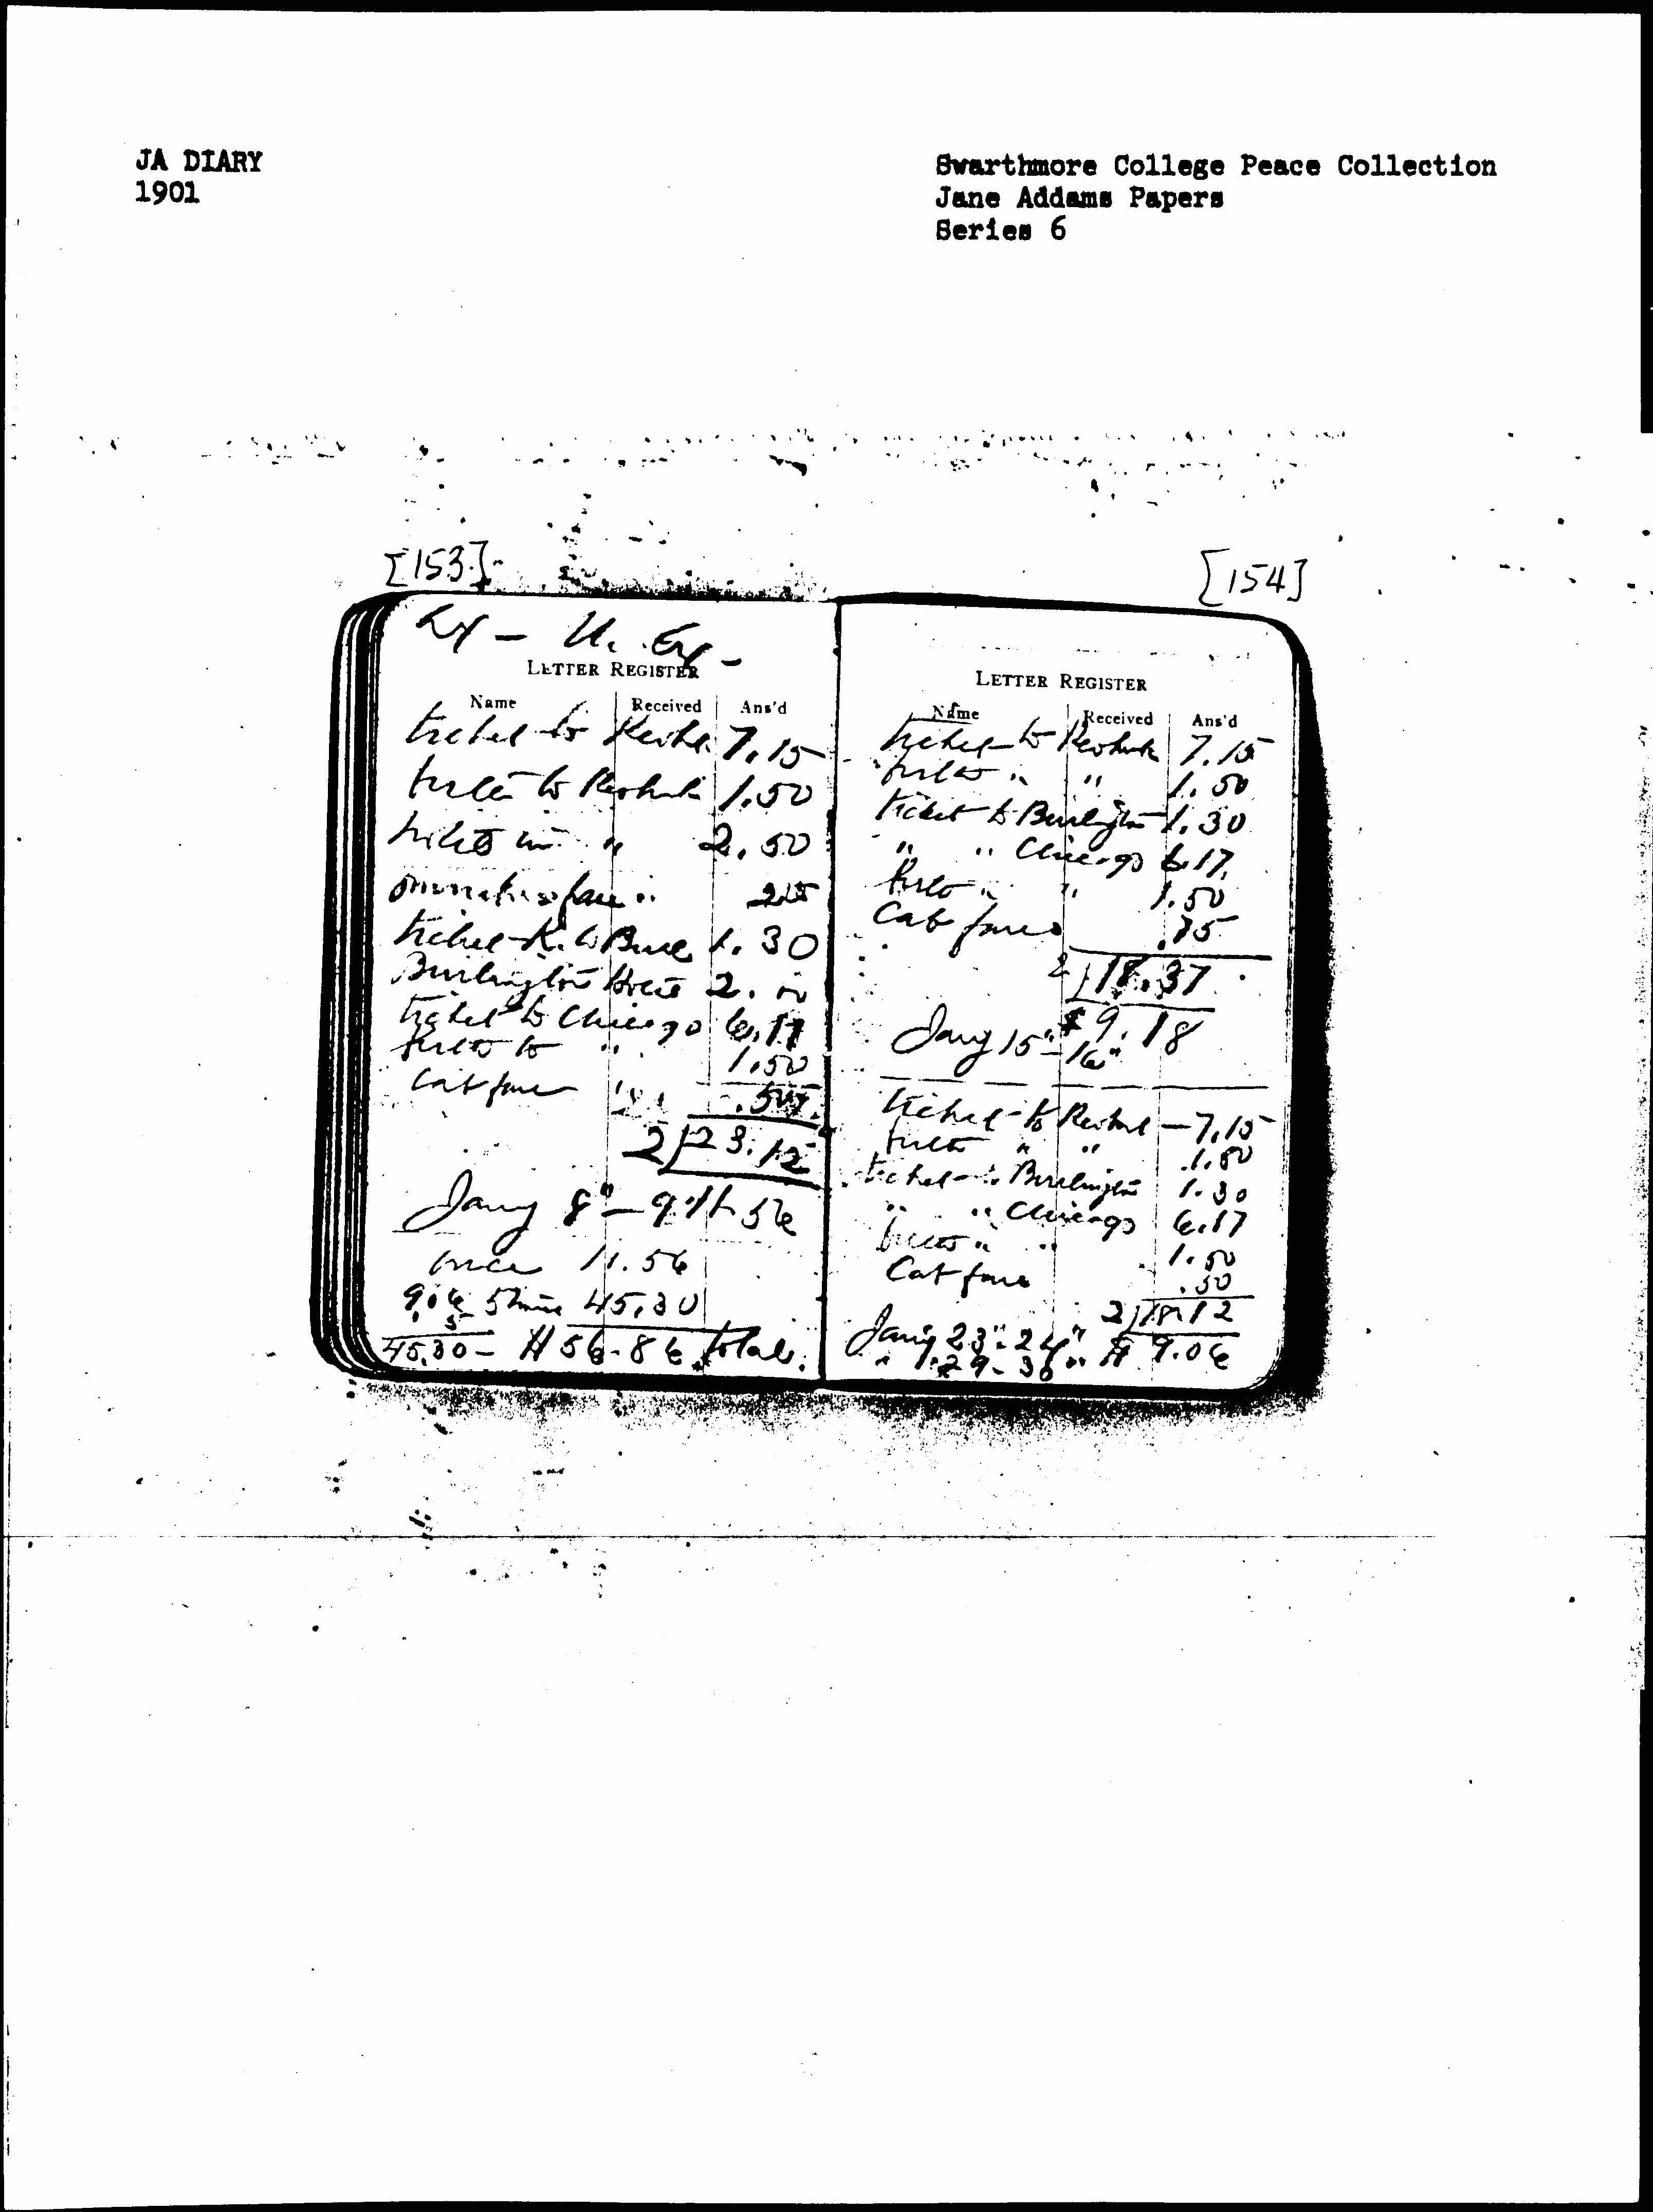 JA DIARY
1901
Swarthmore College Peace Collection
Jane Addams Papers
Series 6
[153]
U. Ex -
LETTER REGISTER
Name Received Ans'd
ticket to Keok 7.15
to Keokuk 1.50
hotel in " 2.50
omnibus fare " .25
ticket K. to Burl 1.30
Burlington Hotel 2.00
ticket to Chicago 6.17
to " 1.50
Cab fare .50
2 | 23.12
Jany 8" - 9" 11.56
once 11.56
9.06 5 times 45.30
5
45.30 - $ 56.86 total.
[154]
LETTER REGISTER
Name Received Ans'd
ticket to Keokuk 7.15
" " 1.50
ticket to Burlington 1.30
" " Chicago 6.17
" " 1.50
Cab fare .75
2 | 18.37
$ 9.18
Jany 15" - 16"
ticket to Keokuk - 7.15
" " 1.50
ticket " Burlington 1.30
" " Chicago 6.17
" " 1.50
Cab fare .50
2 | 18.12
Jany 23" - 24" $ 9.06
" 29 - 30"